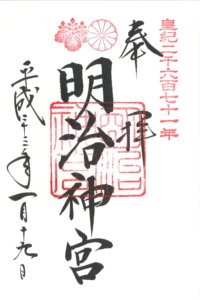 皇紀二千六百七十一年
奉拝
明治神宮
平成二十三年一月十九日